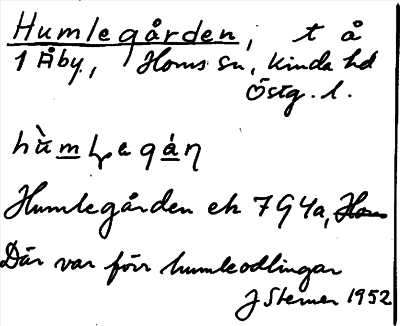 Humlegården, t å
1 Åby, Horns sn, Kinda hd
Östg. l.
Humlegården ek 7G4a,
Där var förr humleodlingar
J Sterner 1952